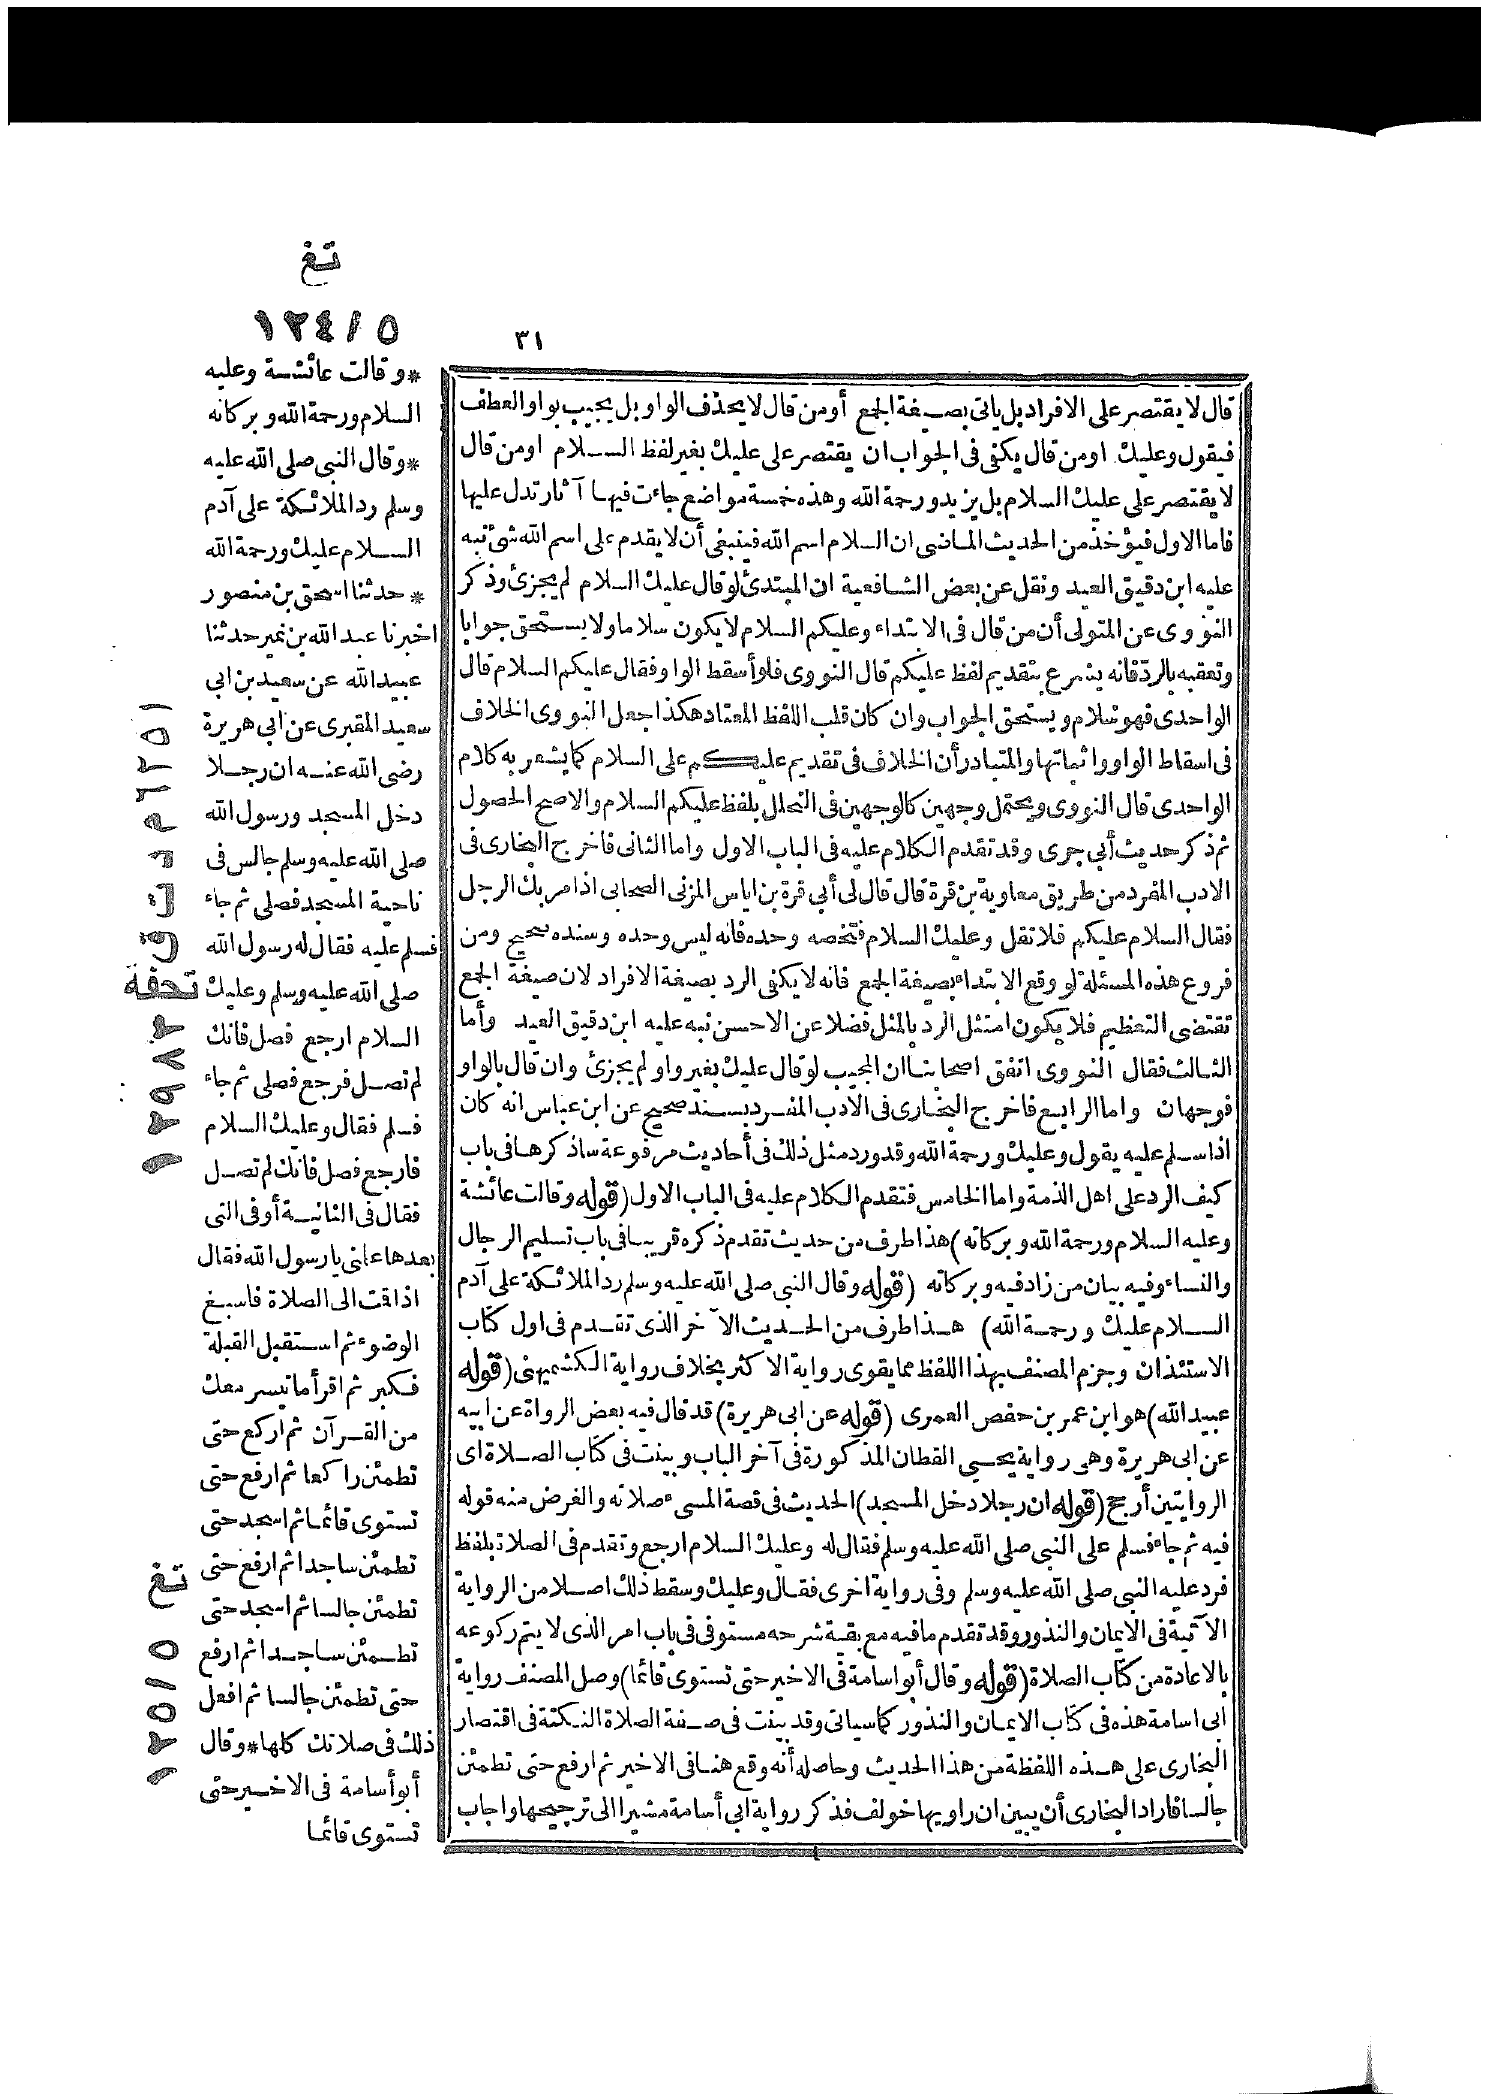 ٣١
قال لا يقتصر على الافراد بل ياتى بصيغة الجمع أو من قال لا يحذف الواو بل يجيب بواو العطف
فيقول وعليك او من قال يكفى فى الجواب ان يقتصر على عليك بغير لفظ السلام او من قال
لا يقتصر على عليك السلام بل يزيد ورحمة الله وهذه خمسة مواضع جاءت فيها آثار تدل عليها
فاما الاول فيؤخذ من الحديث الماضى ان السلام اسم الله فينبغى أن لا يقدم على اسم الله شئ نبه
عليه ابن دقيق العيد ونقل عن بعض الشافعية ان المبتدئ لو قال عليك السلام لم يجزئ وذكر
النووى عن المتولى أن من قال فى الابتداء وعليكم السلام لا يكون سلاما ولا يستحق جوابا
وتعقبه بالرد فانه يشرع بتقديم لفظ عليكم قال النووى فلو أسقط الواو فقال عليكم السلام قال
الواحدى فهو سلام ويستحق الجواب وان كان قلب اللفظ المعتاد هكذا جعل النووى الخلاف
فى اسقاط الواو واثباتها والمتبادر أن الخلاف فى تقديم عليكم على السلام كما يشعر به كلام
الواحدى قال النووى ويحتمل وجهين كالوجهين فى التحلل بلفظ عليكم السلام والاصح الحصول
ثم ذكر حديث أبى جرى وقد تقدم الكلام عليه فى الباب الاول واما الثانى فاخرج البخارى فى
الادب المفرد من طريق معاوية بن قرة قال قال لى أبى قرة بن اياس المزنى الصحابى اذا مر بك الرجل
فقال السلام عليكم فلا تقل وعليك السلام فتخصه وحده فانه ليس وحده وسنده صحيح ومن
فروع هذه المسئلة لو وقع الابتداء بصيغة الجمع فانه لا يكفى الرد بصيغة الافراد لان صيغة الجمع
تقتضى التعظيم فلا يكون امتثل الرد بالمثل فضلا عن الاحسن نبه عليه ابن دقيق العيد وأما
الثالث فقال النووى اتفق اصحابنا ان المجيب لو قال عليك بغير واو لم يجزئ وان قال بالواو
فوجهان واما الرابع فاخرج البخارى فى الادب المفرد بسند صحيح عن ابن عباس انه كان
اذا سلم عليه يقول وعليك ورحمة الله وقد ورد مثل ذلك فى أحاديث مرفوعة ساذكرها فى باب
كيف الرد على اهل الذمة واما الخامس فتقدم الكلام عليه فى الباب الاول (قوله وقالت عائشة
وعليه السلام ورحمة الله وبركاته) هذا طرف من حديث تقدم ذكره قريبا فى باب تسليم الرجال
والنساء وفيه بيان من زاد فيه وبركاته (قوله وقال النبى صلى الله عليه وسلم رد الملائكة على آدم
السلام عليك ورحمة الله) هذا طرف من الحديث الآخر الذى تقدم فى اول كتاب
الاستئذان وجزم المصنف بهذا اللفظ مما يقوى رواية الاكثر بخلاف رواية الكشميهنى (قوله
عبيد الله) هو ابن عمر بن حفص العمرى (قوله عن ابى هريرة) قد قال فيه بعض الرواة عن ابيه
عن ابى هريرة وهى رواية يحيى القطان المذكورة فى آخر الباب وبينت فى كتاب الصلاة اى
الروايتين أرجح (قوله ان رجلا دخل المسجد) الحديث فى قصة المسىء صلاته والغرض منه قوله
فيه ثم جاء فسلم على النبى صلى الله عليه وسلم فقال له وعليك السلام ارجع وتقدم فى الصلاة بلفظ
فرد عليه النبى صلى الله عليه وسلم وفى رواية اخرى فقال وعليك وسقط ذلك اصلا من الرواية
الآتية فى الايمان والنذور وقد تقدم ما فيه مع بقية شرحه مستوفى فى باب امر الذى لا يتم ركوعه
بالاعادة من كتاب الصلاة (قوله وقال أبو اسامة فى الاخير حتى تستوى قائما) وصل المصنف رواية
ابى اسامة هذه فى كتاب الايمان والنذور كما سياتى وقد بينت فى صفة الصلاة النكتة فى اقتصار
البخارى على هذه اللفظة من هذا الحديث وحاصله أنه وقع هنا فى الاخير ثم ارفع حتى تطمئن
جالسا فاراد البخارى أن يبين ان راويها خولف فذكر رواية ابى أسامة مشيرا الى ترجيحها واجاب
تغ
١٢٤/٥
*وقالت عائشة وعليه
السلام ورحمة الله وبركاته
*وقال النبى صلى الله عليه
وسلم رد الملائكة على آدم
السلام عليك ورحمة الله
*حدثنا اسحق بن منصور
اخبرنا عبد الله بن نمير حدثنا
عبيد الله عن سعيد بن ابى
سعيد المقبرى عن ابى هريرة
رضى الله عنه ان رجلا
دخل المسجد ورسول الله
صلى الله عليه وسلم جالس فى
ناحية المسجد فصلى ثم جاء
فسلم عليه فقال له رسول الله
صلى الله عليه وسلم وعليك
السلام ارجع فصل فانك
لم تصل فرجع فصلى ثم جاء
فسلم فقال وعليك السلام
فارجع فصل فانك لم تصل
فقال فى الثانية أو فى التى
بعدها علمنى يا رسول الله فقال
اذا قمت الى الصلاة فاسبغ
الوضوء ثم استقبل القبلة
فكبر ثم اقرأ ما تيسر معك
من القرآن ثم اركع حتى
تطمئن راكعا ثم ارفع حتى
تستوى قائما ثم اسجد حتى
تطمئن ساجدا ثم ارفع حتى
تطمئن جالسا ثم اسجد حتى
تطمئن ساجدا ثم ارفع
حتى تطمئن جالسا ثم افعل
ذلك فى صلاتك كلها *وقال
أبو أسامة فى الاخير حتى
تستوى قائما
تحفة
١٢٩٨٣
تغ
١٢٥/٥